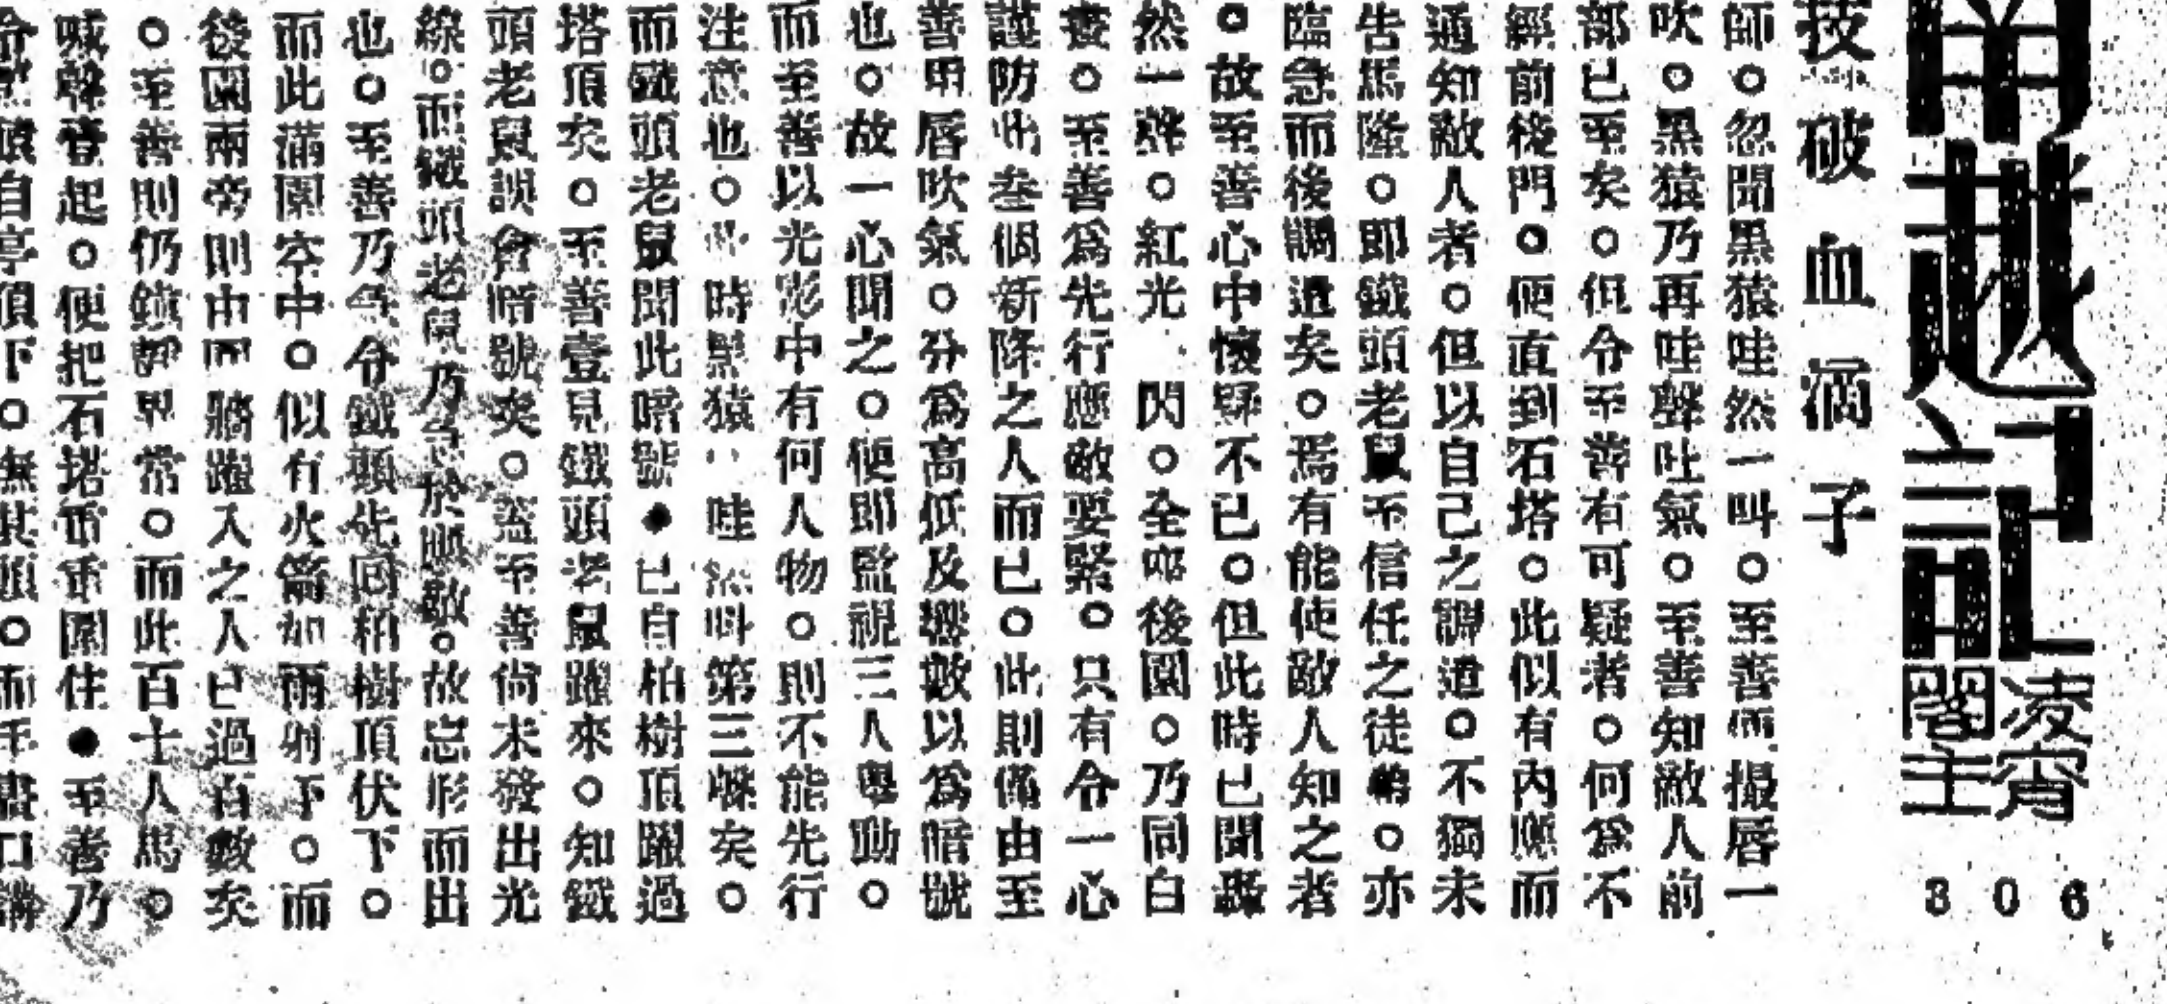 南越記
凌霄閣主
306
技破血滴子
師。忽聞黑猿哇然一叫。至善撮唇一
吹。黑猿乃再哇聲吐氣。至善知敵人前
部已至矣。但令至善有可疑者。何為不
經前後門。便直到石塔。此似有內應而
通知敵人者。但以自己之調造。不獨未
告馬隆。即鐵頭老鼠不信任之徒弟。亦
臨急而後調造矣。焉有能使敵人知之者
。故至善心中懷疑不已。但此時已聞轟
然一聲。紅光 閃。全後園。乃同白
晝。至善為先行應敵要緊。只有令一心
護防此叁個新降之人而已。此則僅由至
善用唇吹氣。分為高低及數以為暗號
也。故一心聞之。便即監視三人舉動。
而至善以光影中有何人物。則不能先行
注意也。此時黑猿 哇然叫第三聲矣。
而鐵頭老鼠聞此暗號●已自柏樹頂躍過
塔頂矣。至善壹見鐵頭老鼠躍來。知鐵
頭老鼠誤會暗號矣。蓋至善尚未發出光
線。而鐵頭老鼠乃急於應敵。故忘形而出
也。至善乃令鐵頭先回柏樹頂伏下。
而此滿園空中。似有火箭如雨射下。而
後園兩旁則由四牆躍入之人已過百數矣
。至善則仍鎮靜異常。而此百十人馬。
喊聲登起。便把石塔重重圍住●至善乃
自亭頂下。無其頭。而